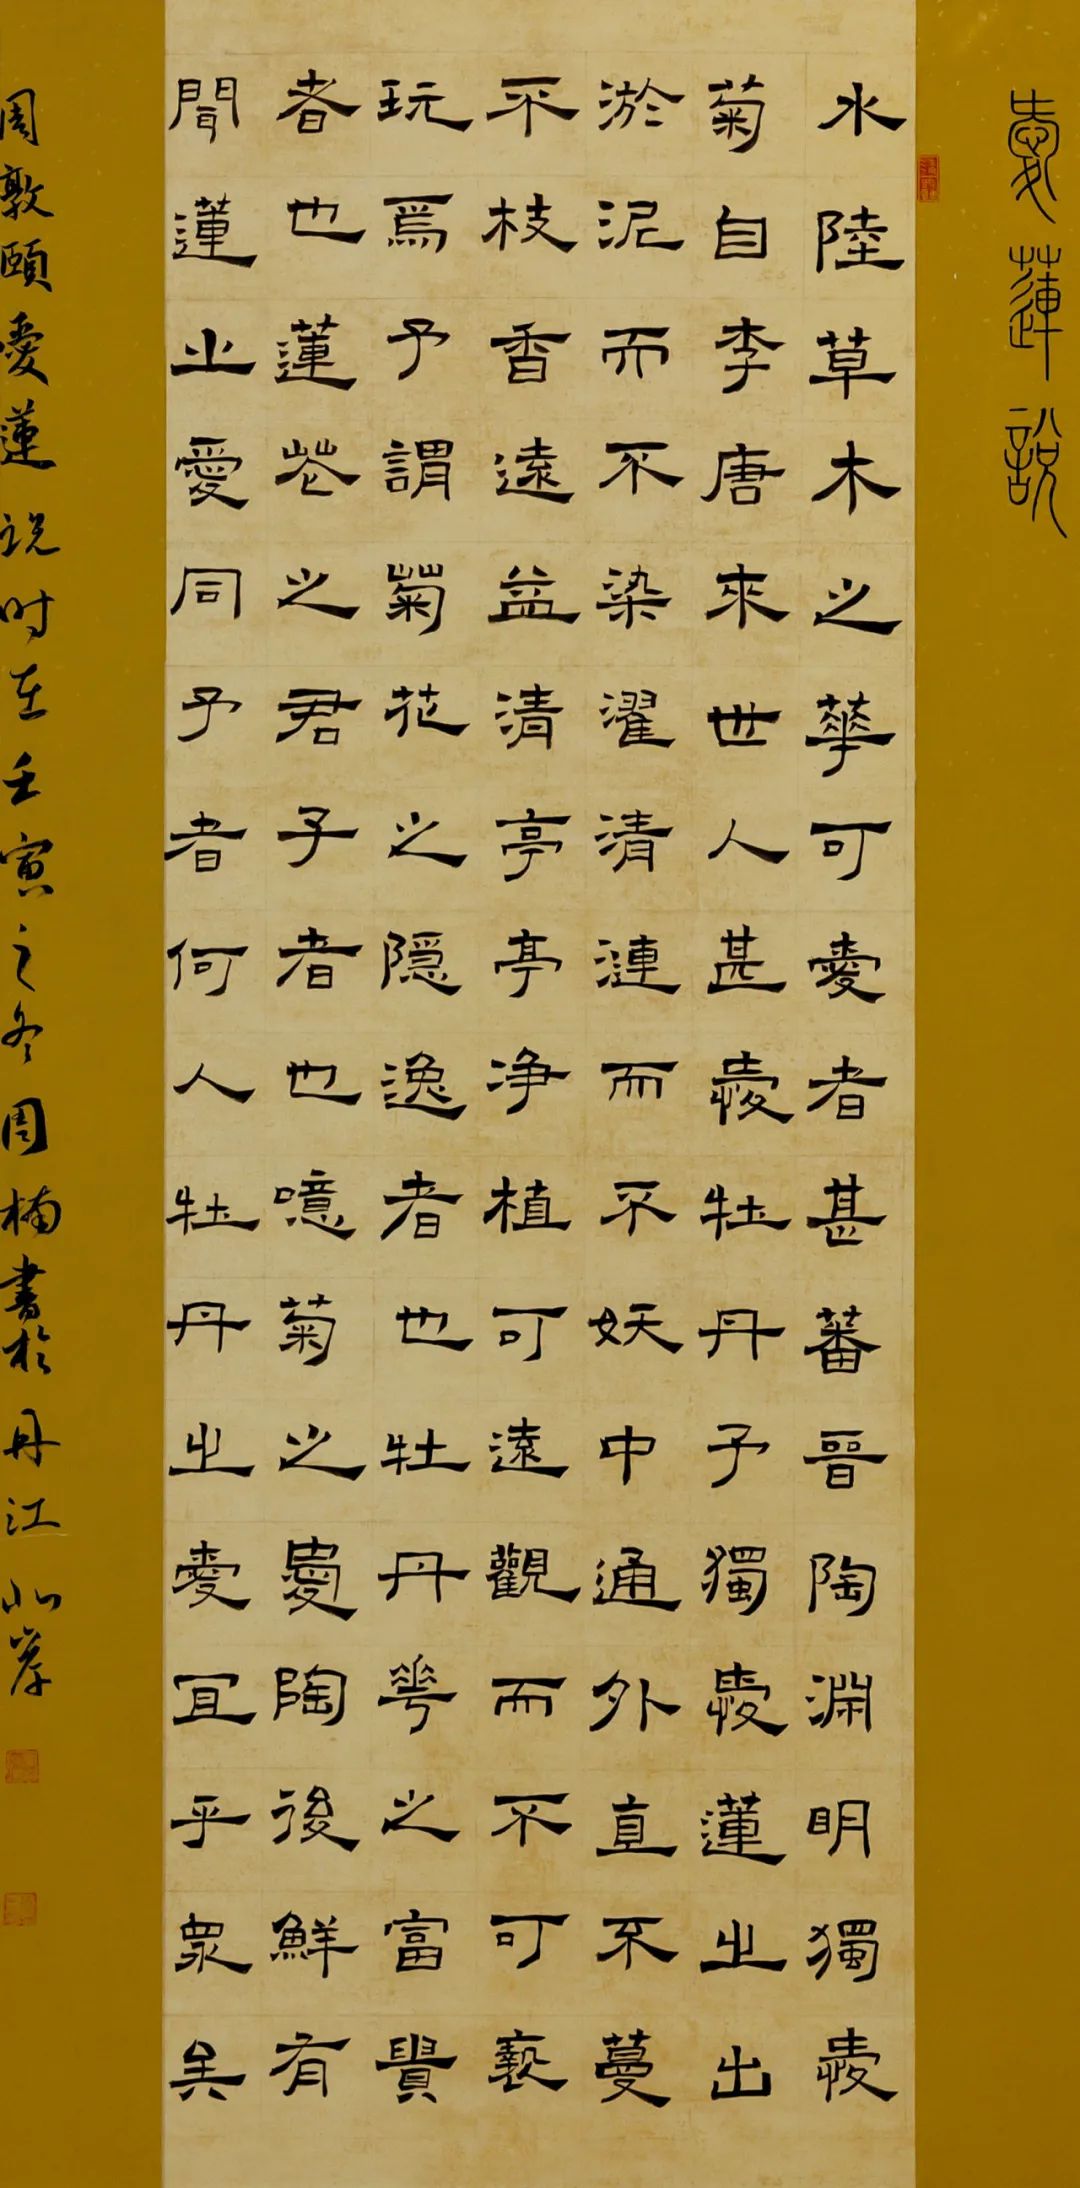 愛蓮說
水陸草木之華可愛者甚蕃晉陶淵明獨愛
菊自李唐來世人甚愛牡丹予獨愛蓮之出
淤泥而不染濯清漣而不妖中通外直不蔓
不枝香遠益清亭亭净植可遠觀而不可褻
玩焉予謂菊花之隱逸者也牡丹華之富貴
者也蓮花之君子者也噫菊之愛陶後鮮有
聞蓮之愛同予者何人牡丹之愛宜乎眾矣
周敦頤愛蓮说时在壬寅之冬周楠書於丹江北岸